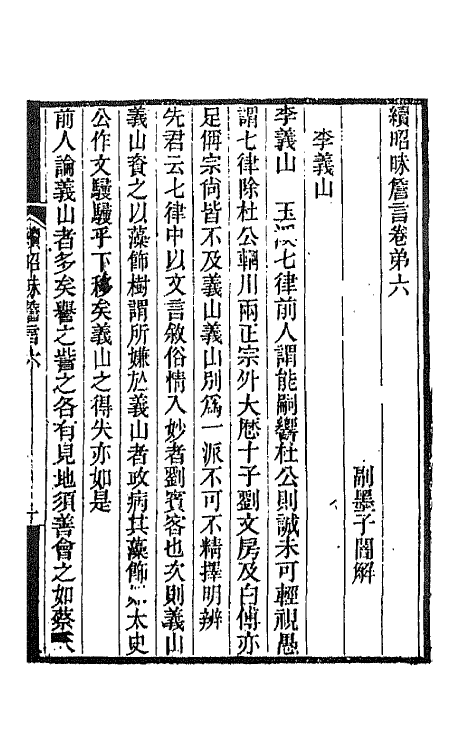 續昭昧詹言卷弟六
副墨子闇解
李義山
李義山 玉溪七律前人謂能嗣響杜公則誠未可輕視愚
謂七律除杜公輞川兩正宗外大曆十子劉文房及白傅亦
足偁宗尙皆不及義山義山別爲一派不可不精擇明辨
先君云七律中以文言敘俗情入妙者劉賓客也次則義山
義山資之以藻飾樹謂所嫌於義山者政病其藻飾 太史
公作文駸駸乎下移矣義山之得失亦如是
前人論義山者多矣譽之訾之各有見地須善會之如蔡
續昭昧詹言六